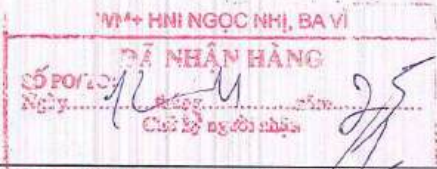 WM+ HNI NGỌC NHỊ, BA VÌ
ĐÃ NHẬN HÀNG
SỐ PO/
Ngày 12 tháng 4 năm 25
Chữ ký người nhận